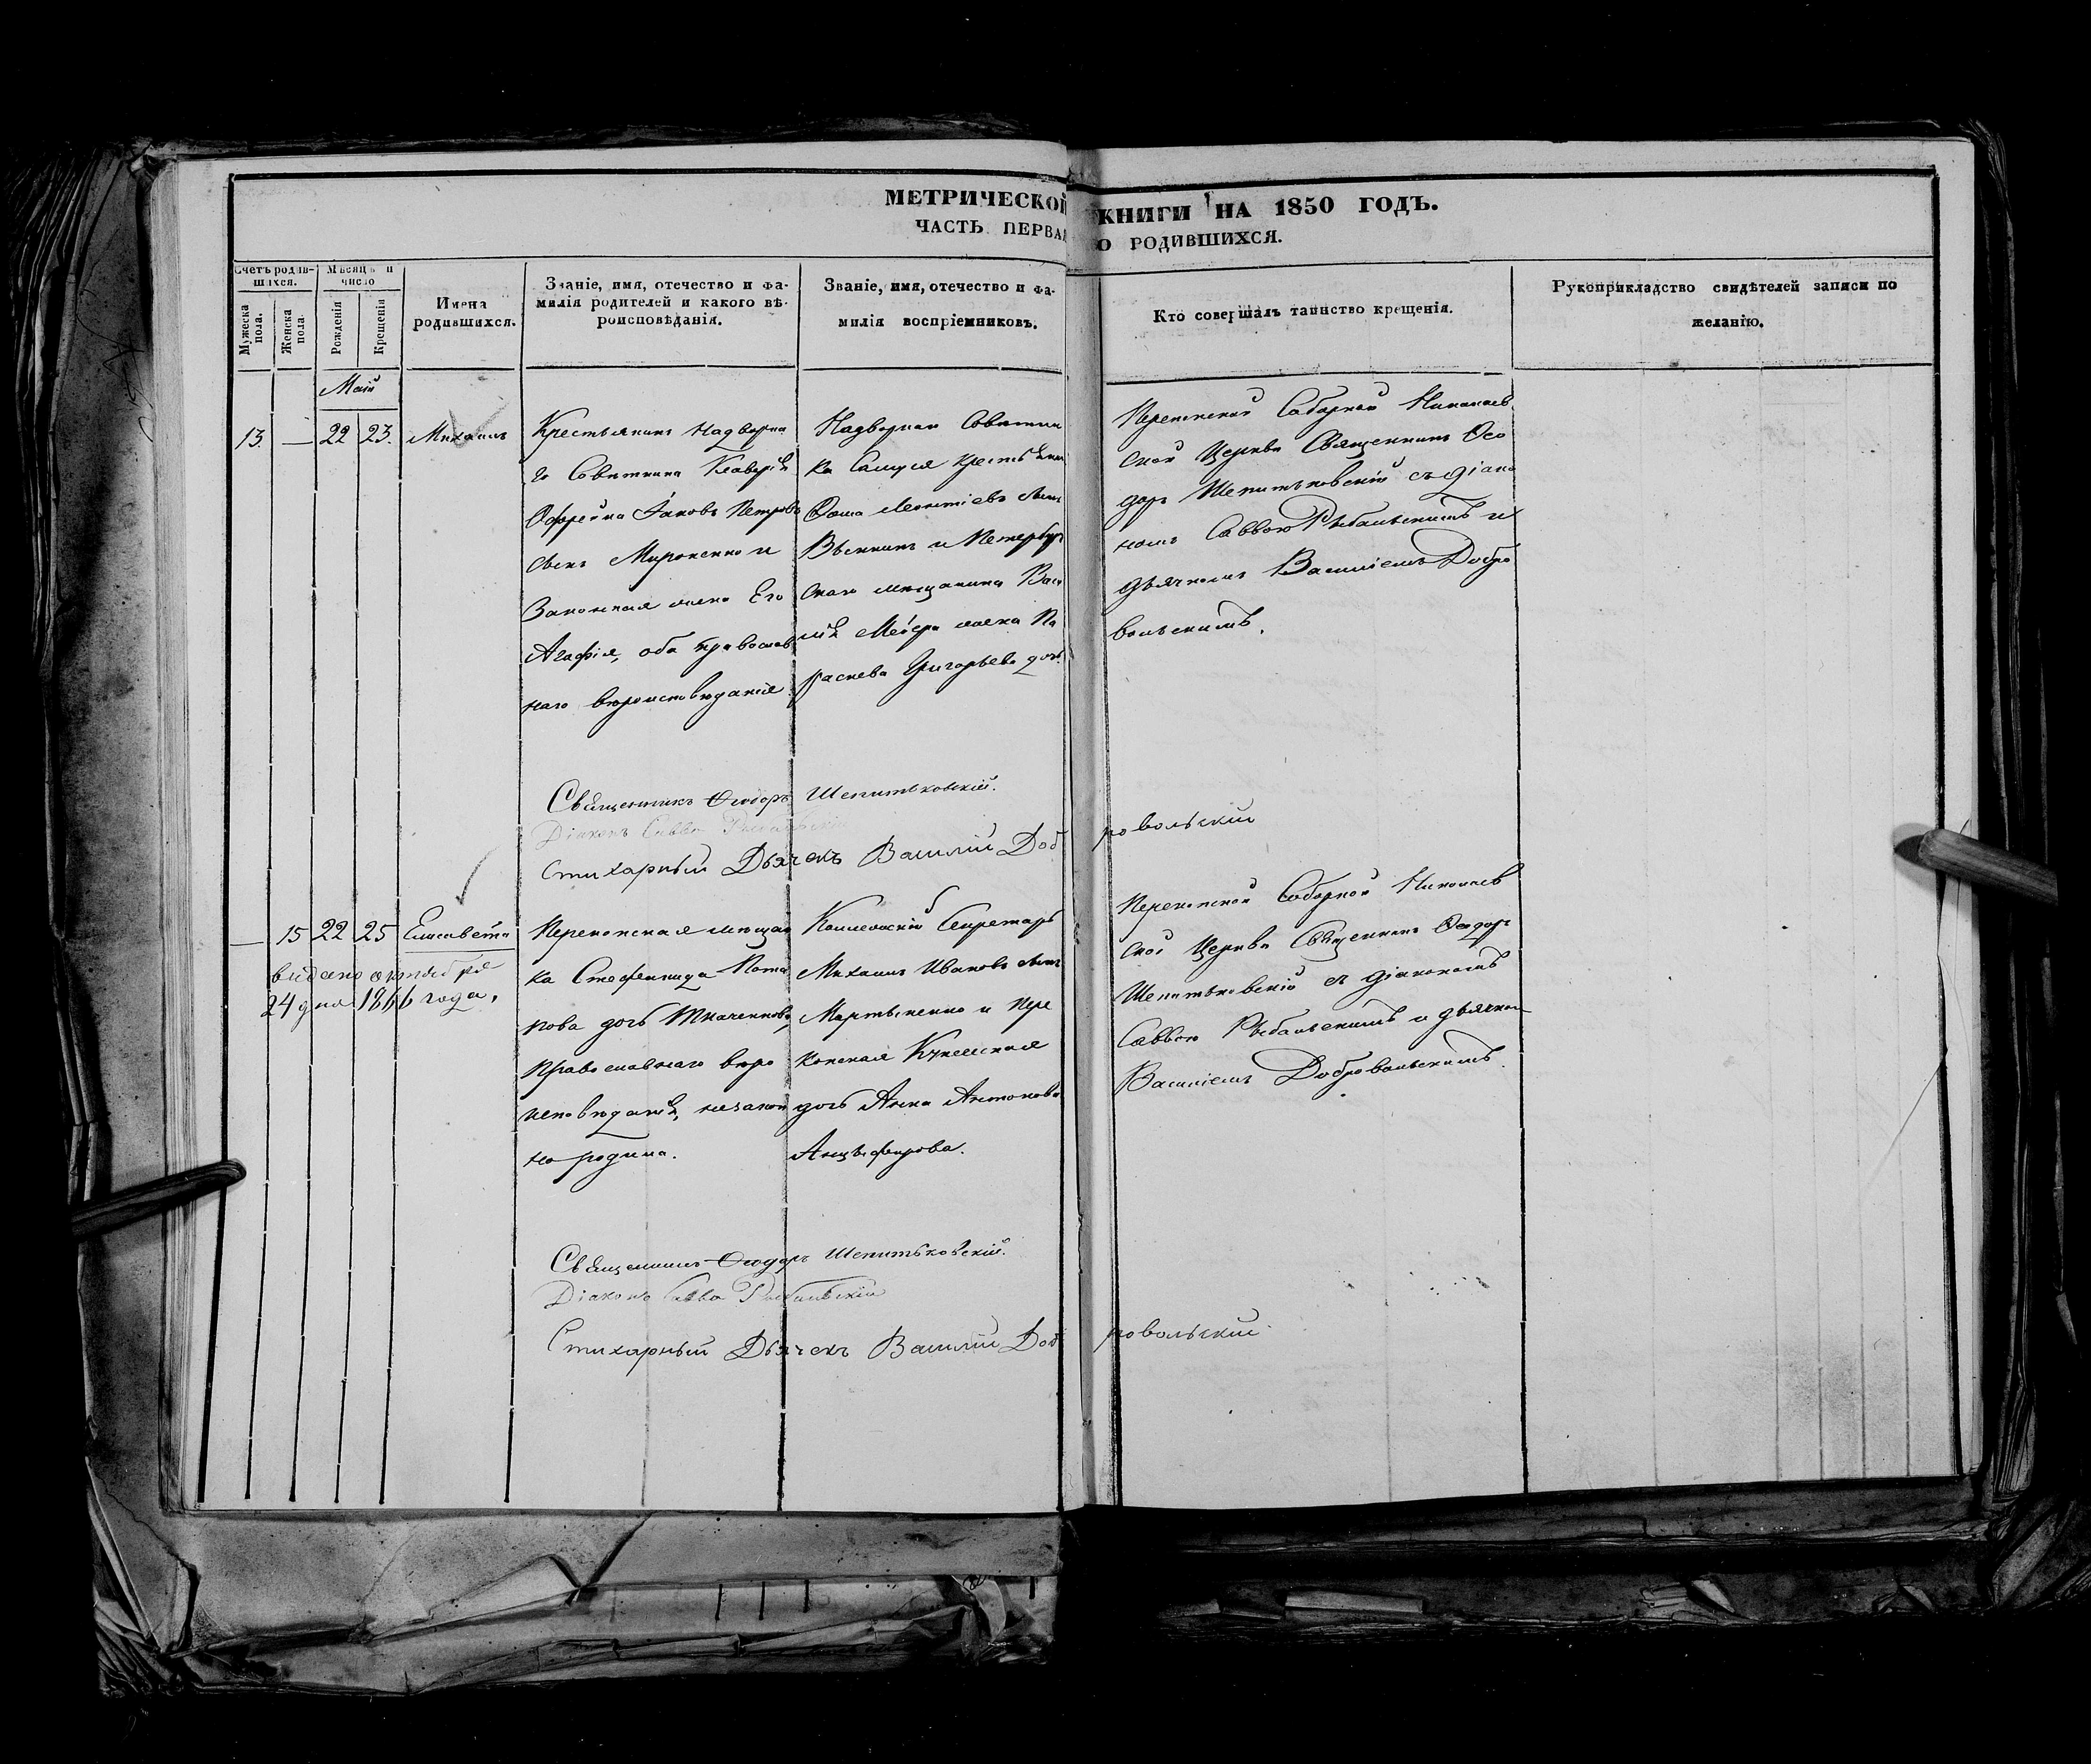 МЕТРИЧЕСКОЙ КНИГИ НА 1850 ГОДЪ.
ЧАСТЬ ПЕРВАЯ О РОДИВШИХСЯ.
Счетъ родив-
шихся.
Мужеска
пола.
Женска
пола.
Мѣсяцъ и
число
Рожденія
Крещенія
Имена
родившихся.
Званіе, имя, отечество и фа-
милія родителей и какого вѣ-
роисповѣданія.
Званіе, имя, отечество и фа-
милія воспріемниковъ.
Кто совершалъ таинство крещенія.
Рукоприкладство свидѣтелей записи по
желанію.
Маій
13. — 22 23. Михаилъ
Крестьянинъ Надворна
го Совѣтника
Іаковъ Петровъ
сынъ Мироненко и
Законная жена Его
Агафія, оба православ
наго вѣроисповѣданія
Надворнаго Совѣтни
ка крестьянин
Ѳома Леонтіевъ сынъ
и Петербург
скаго мѣщанина Васи
лія жена Па
раскева Григорьева дочь
Перекопской Соборной Николаев
ской Церкви Священникъ Ѳео
доръ Шепитьковскій съ діако
номъ Саввою Рыбальскимъ и
дьячкомъ Василіемъ Добро
вольскимъ.
Священникъ Ѳеодоръ Шепитьковскій.
Діаконъ Савва Рыбальскій
Стихарный Дьячекъ Василій Доб ровольскій
— 15 22 25 Елисавета
видано октября
24 дня 1866 года.
Перекопская мѣщан
ка Пота
пова дочь Ткаченкова,
Православнаго вѣро
исповѣданія, незакон
но родила.
Коллежскій Секретарь
Михаилъ Ивановъ сынъ
Мартыненко и Пере
копская
дочь Анна Антонова
Анцыферова.
Перекопской Соборной Николаев
ской Церкви Священникъ Ѳеодоръ
Шепитьковскій съ діакономъ
Саввою Рыбальскимъ и дьячком
Василіемъ Добровольскимъ.
Священникъ Ѳеодоръ Шепитьковскій.
Діаконъ Савва Рыбальскій
Стихарный Дьячекъ Василій Доб ровольскій